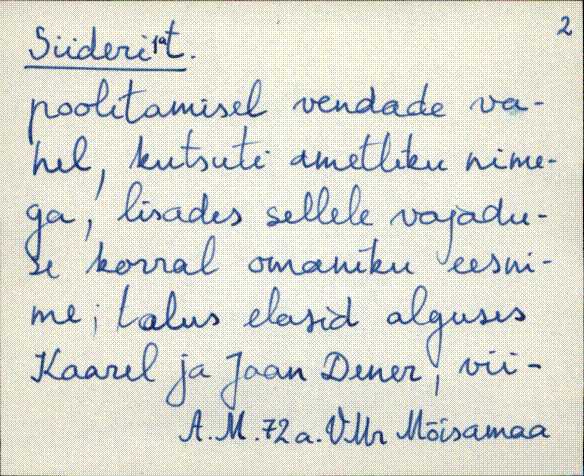 2
Siiderijat.
poolitamisel vendade va-
hel, kutsuti ametliku nime-
ga, lisades sellele vajadu-
se korral omaniku eesni-
me; talus elasid alguses
Kaarel ja Jaan Dener, vii-
A.M. 72 a. VMr Mõisamaa